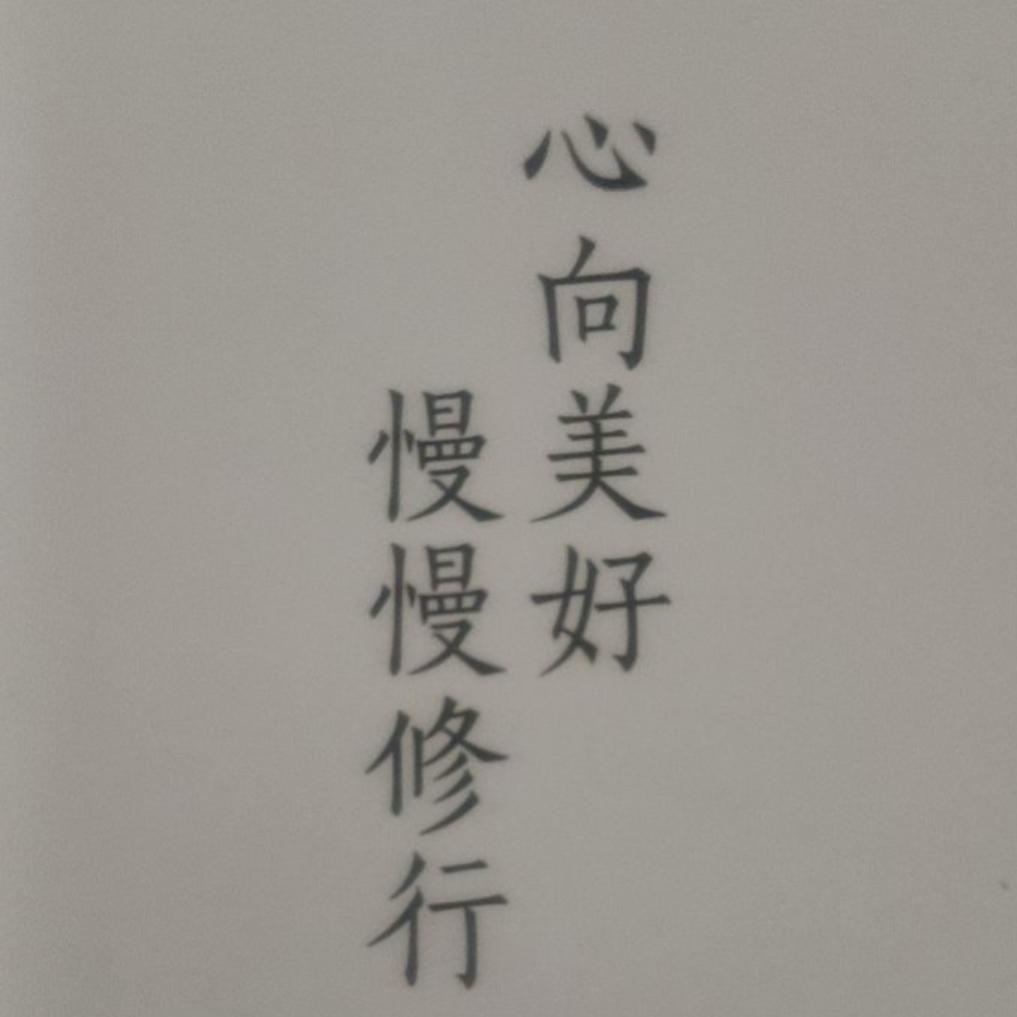 心向美好
慢慢修行